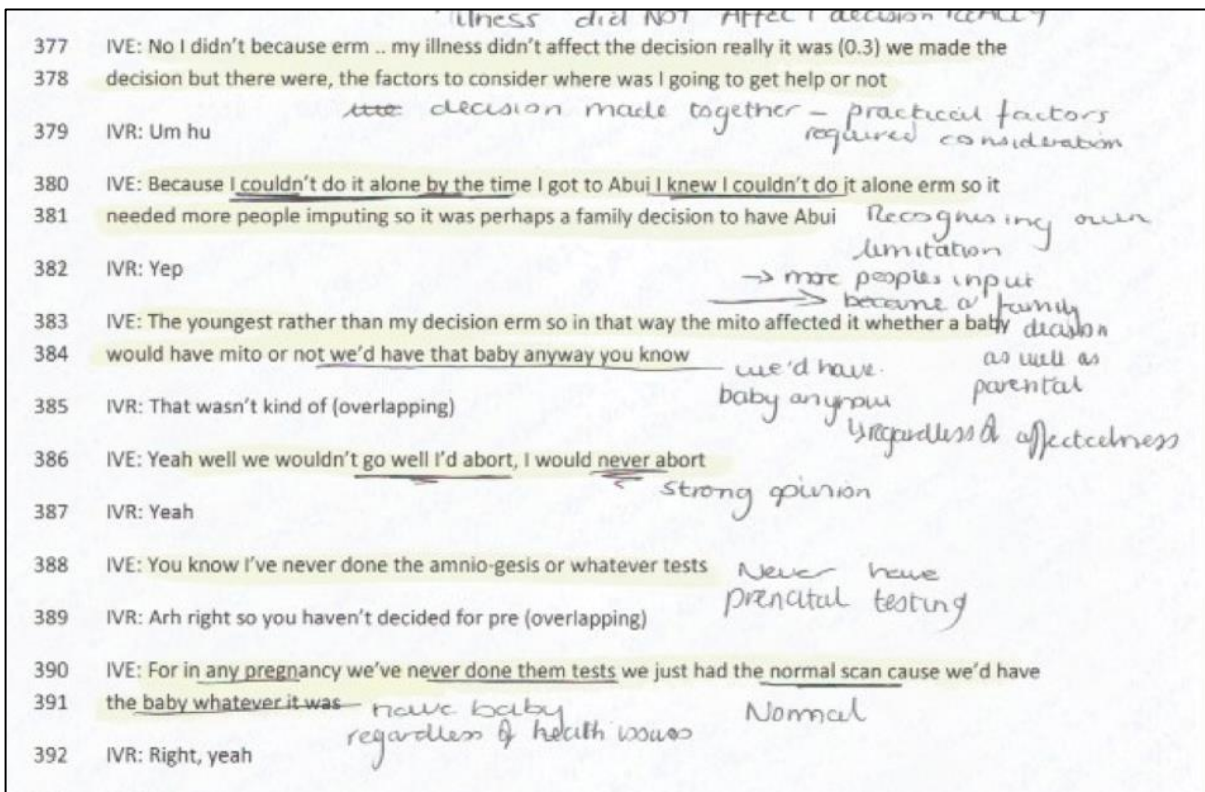 illness did NOT Affect decision REALLY
377 IVE: No I didn't because erm .. my illness didn't affect the decision really it was (0.3) we made the
378 decision but there were, the factors to consider where was I going to get help or not
decision made together – practical factors
required consideration
379 IVR: Um hu
380 IVE: Because I couldn't do it alone by the time I got to Abui I knew I couldn't do it alone erm so it
381 needed more people imputing so it was perhaps a family decision to have Abui
Recognising own
limitation
382 IVR: Yep
→ more peoples input
→ became a family
decision
as well as
parental
383 IVE: The youngest rather than my decision erm so in that way the mito affected it whether a baby
384 would have mito or not we'd have that baby anyway you know
we'd have
baby anyhow
↳ regardless of affectedness
385 IVR: That wasn't kind of (overlapping)
386 IVE: Yeah well we wouldn't go well I'd abort, I would never abort
Strong opinion
387 IVR: Yeah
388 IVE: You know I've never done the amnio-gesis or whatever tests
Never have
prenatal testing
389 IVR: Arh right so you haven't decided for pre (overlapping)
390 IVE: For in any pregnancy we've never done them tests we just had the normal scan cause we'd have
391 the baby whatever it was
have baby
regardless of health issues
Normal
392 IVR: Right, yeah